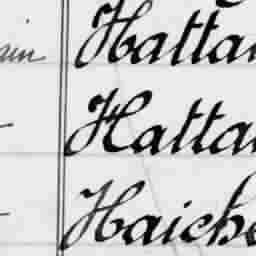 ain Hatta
Hatta
Haich